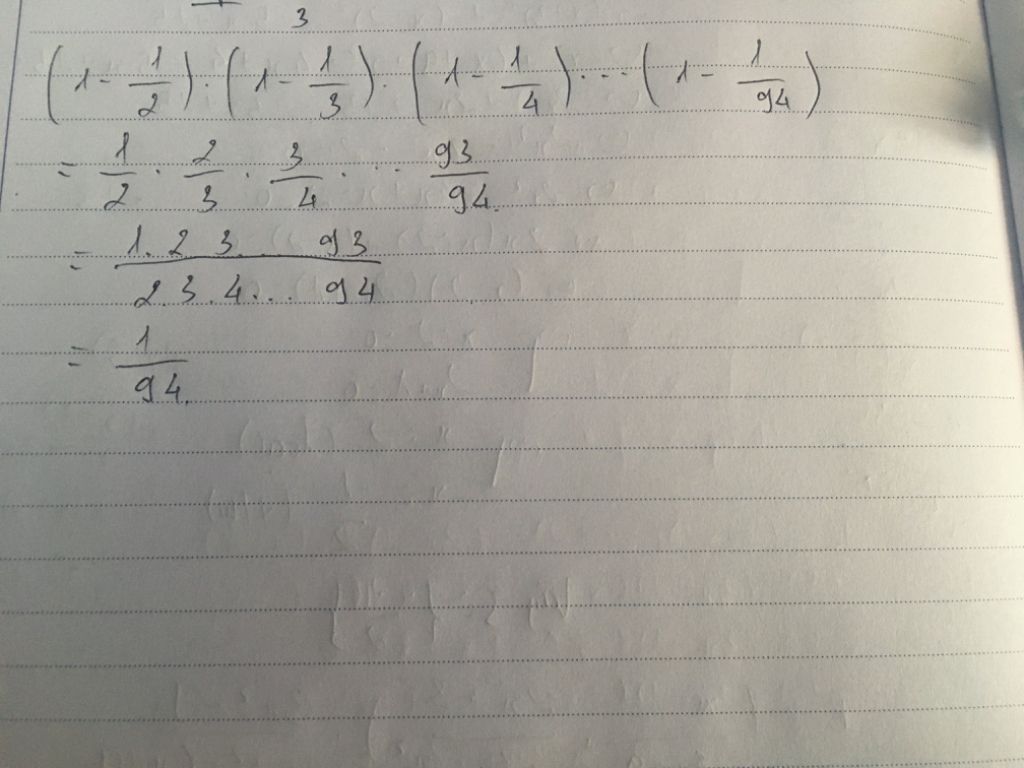 3
(1 - 1/2) . (1 - 1/3) . (1 - 1/4) ... (1 - 1/94)
= 1/2 . 2/3 . 3/4 . ... 93/94.
= 1. 2 3. .. 93 / 2.3.4... 94
= 1/94.